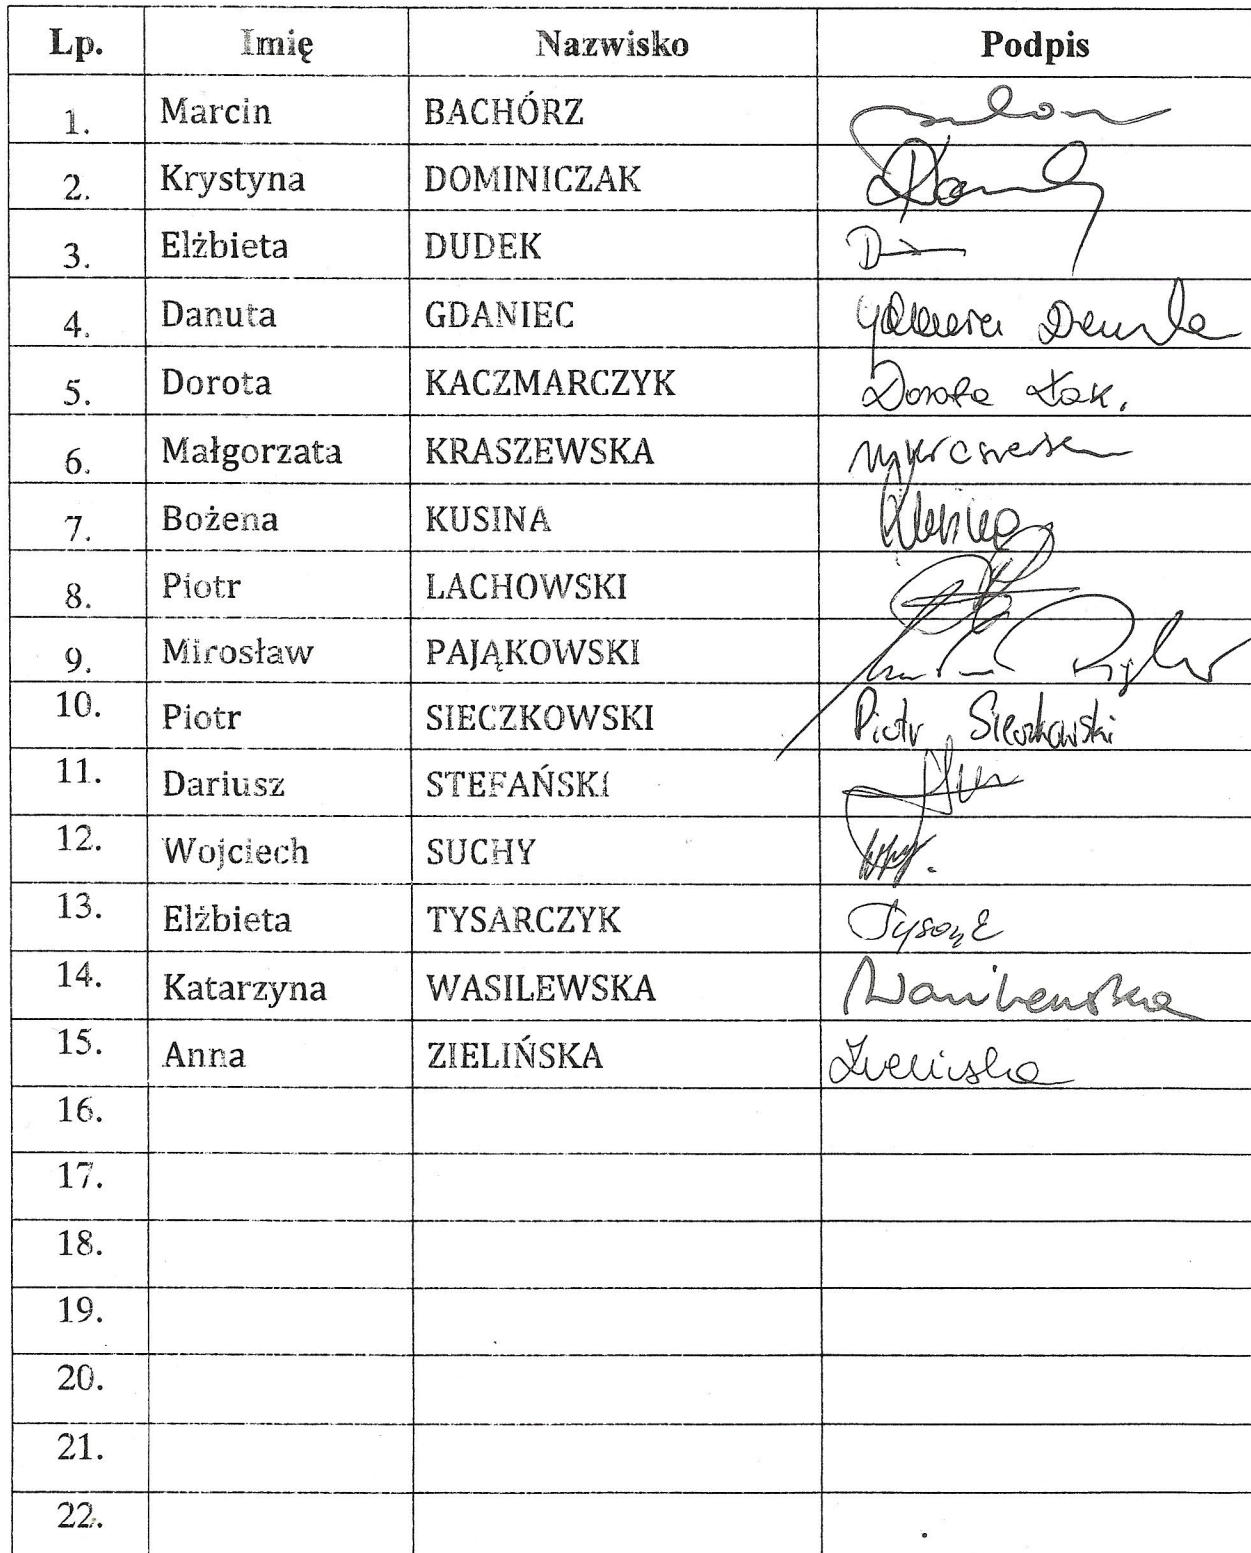 Lp. Imię Nazwisko Podpis
1. Marcin BACHÓRZ
2. Krystyna DOMINICZAK
3. Elżbieta DUDEK
4. Danuta GDANIEC
5. Dorota KACZMARCZYK Dorota
6. Małgorzata KRASZEWSKA
7. Bożena KUSINA
8. Piotr LACHOWSKI
9. Mirosław PAJĄKOWSKI
10. Piotr SIECZKOWSKI Piotr Sieczkowski
11. Dariusz STEFAŃSKI
12. Wojciech SUCHY
13. Elżbieta TYSARCZYK
14. Katarzyna WASILEWSKA Wasilewska
15. Anna ZIELIŃSKA Zielińska
16.
17.
18.
19.
20.
21.
22.